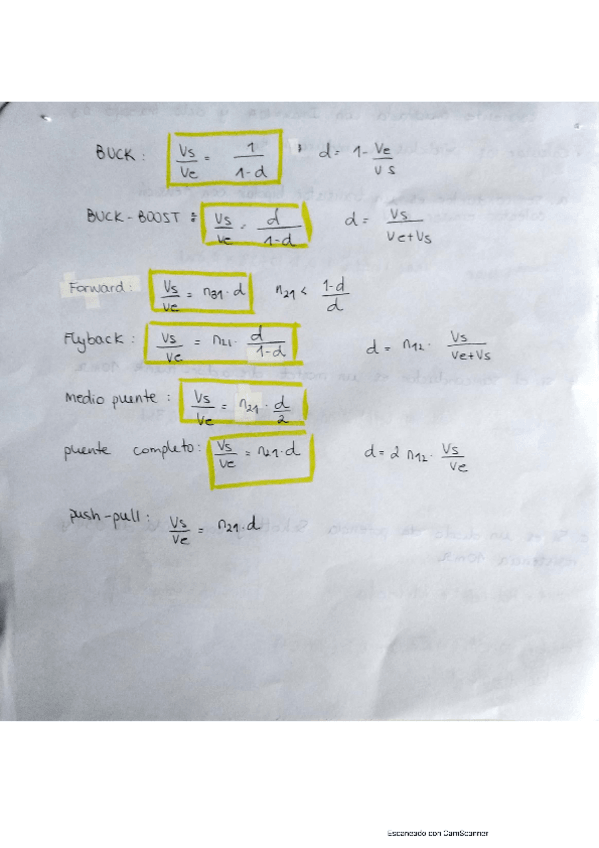 BUCK: Vs/Ve = 1/1-d d = 1-Ve/Vs
BUCK-BOOST: Vs/Ve = d/1-d d = Vs/Ve+Vs
Forward: Vs/Ve = n21·d n21 < 1-d/d
Flyback: Vs/Ve = n21·d/1-d d = n12·Vs/Ve+Vs
medio puente: Vs/Ve = n21·d/2
puente completo: Vs/Ve = n21·d d = 2 n12·Vs/Ve
push-pull: Vs/Ve = n21·d
Escaneado con CamScanner